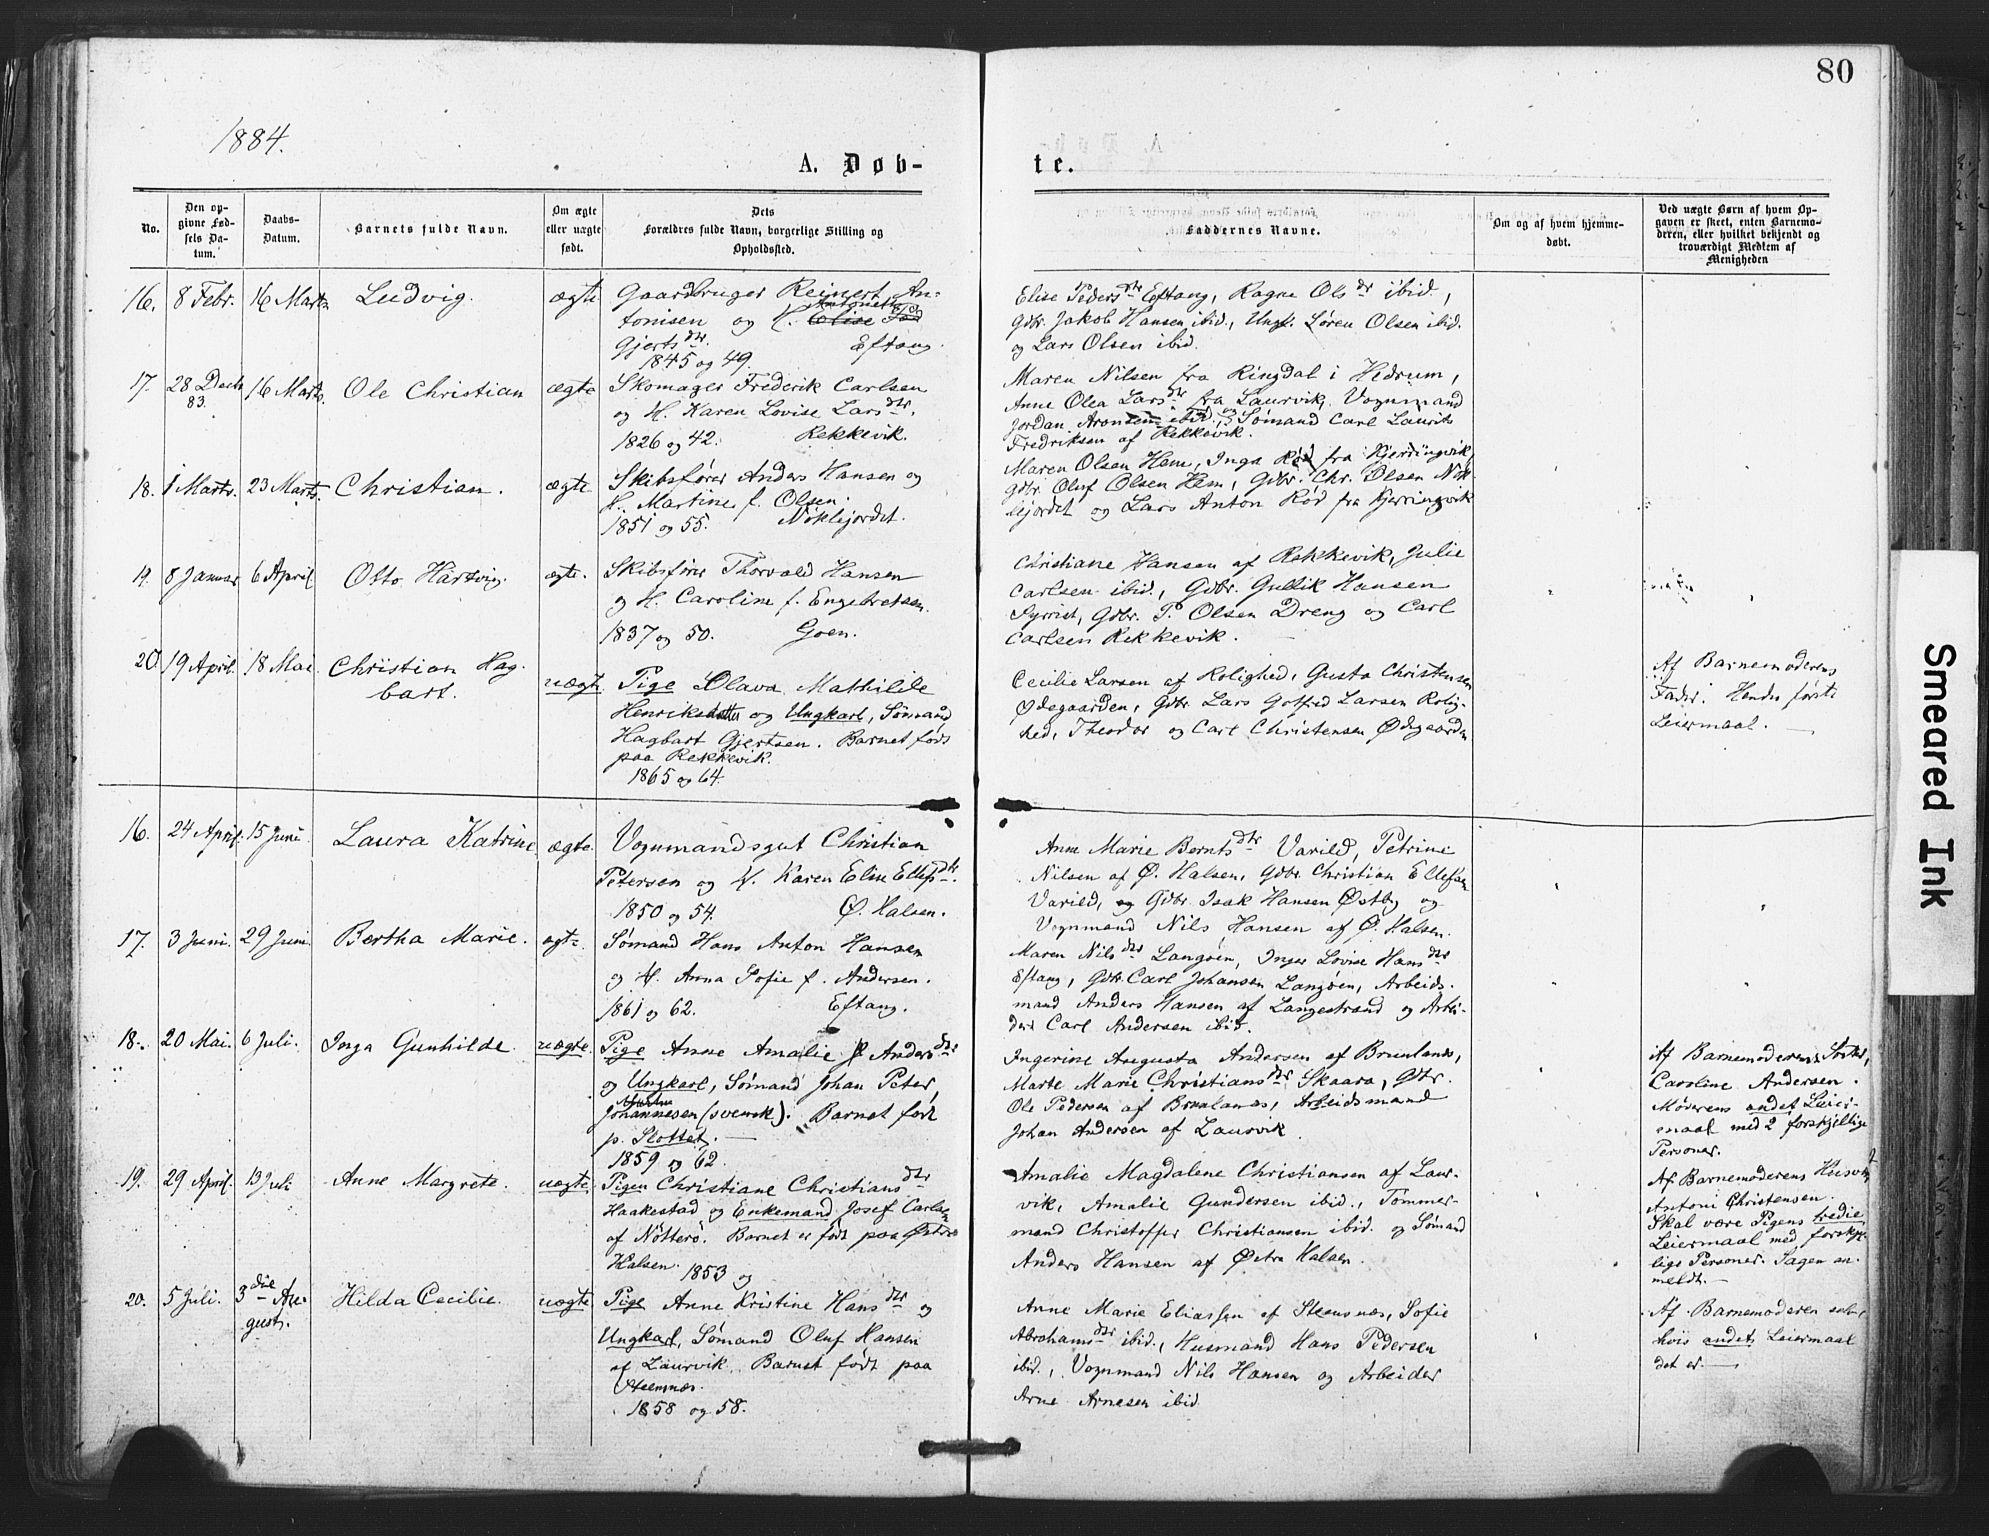 80
1884.
A. Døb-
te.
No.
Den op-
givne Fød-
sels Da-
tum.
Daabs-
Datum.
Barnets fulde Navn.
Om ægte
eller uægte
født.
Dets
Forældres fulde Navn, borgerlige Stilling og
Opholdssted.
Faddernes Navne.
Om og af hvem hjemme-
døbt.
Ved uægte Børn af hvem Op-
gaven er skeet, enten Barnemo-
deren, eller hvilket bekjendt og
troværdigt Medlem af
Menigheden
16. 8 Febr. 16 Marts Ludvig. ægte
Gaardbruger Reinert An-
tonisen og H. Elise Antonette
Gjertsdtr. Eftang.
1845 og 49.
Elise Pedersdtr Eftang, Ragne Olsdr ibid.,
Gdbr. Jakob Hansen ibid., Ungk. Søren Olsen ibid.
og Lars Olsen ibid.
17. 28 Decb 83. 16 Marts. Ole Christian ægte
Skomager Frederik Carlsen
og H. Karen Lovise Larsdtr.
1826 og 42. Rekkevik.
Maren Nilsen fra Ringdal i Hedrum,
Anne Olea Larsdtr fra Laurvik, Vognmand
Jordan Aronsen ibid., og Sømand Carl Laurits
Fredriksen af Rekkevik.
18. 1 Marts. 23 Marts. Christian. ægte
Skibsfører Anders Hansen og
H. Martine f. Olsen.
1851 og 55. Nøklejordet.
Maren Olsen Hem, Inga Rød fra Kjerringvik,
Gdbr. Oluf Olsen Hem, Gdbr. Chr. Olsen Nøk-
lejordet og Lars Anton Rød fra Kjerringvik
19. 8 Januar 6 April Otto Hartvig. ægte.
Skibsfører Thorvald Hansen
og H. Caroline f. Engebretsen.
1837 og 50. Goen.
Christiane Hansen af Rekkevik, Julie
Carlsen ibid., Gdbr. Gullik Hansen
Syrrist, Gdbr. P. Olsen Dreng og Carl
Carlsen Rekkevik.
20. 19 April. 18 Mai. Christian Hag-
bart. uægte
Pige Olava Mathilde
Henriksdatter og Ungkarl, Sømand
Hagbart Gjertsen. Barnet født
paa Rekkevik.
1865 og 64.
Cecilie Larsen af Rolighed, Gusta Christensen
Ødegaarden, Gdbr. Lars Gotfred Larsen Rolig-
hed, Theodor og Carl Christensen Ødegaarden
Af Barnemoderens
Fader. Hendes første
Leiermaal.
16. 24 April. 15 Juni. Laura Katrine ægte.
Vognmandsgut Christian
Petersen og H. Karen Elise Ellefsdtr.
1850 og 54. Ø. Halsen.
Anne Marie Berntsdtr Varild, Petrine
Nilsen af Ø. Halsen, Gdbr. Christian Ellefsen
Varild, og Gdbr. Isak Hansen Østby og
Vognmand Nils Hansen af Ø. Halsen.
17. 3 Juni. 29 Juni. Bertha Marie. ægte
Sømand Hans Anton Hansen
og H. Anna Sofie f. Andersen.
1861 og 62. Eftang.
Maren Nilsdtr Langøen, Inger Lovise Hansdtr
Eftang, Gdbr. Carl Johansen Langøen, Arbeids-
mand Anders Hansen af Langestrand og Arbei-
der Carl Andersen ibid.
18. 20 Mai. 6 Juli. Inga Gunhilde. uægte.
Pige Anne Amalie Andersdtr
og Ungkarl, Sømand Johan Peter
Johannesen (svensk). Barnet født
p. Slottet.
1859 og 62.
Ingerine Augusta Andersen af Brunlanes,
Marte Marie Christiansdtr Skaara, Gdbr.
Ole Pedersen af Brunlanes, Arbeidsmand
Johan Andersen af Laurvik.
Af Barnemoderens Søster,
Caroline Andersen.
Moderens andet Leier-
maal med 2 forskjellige
Personer.
19. 29 April. 13 Juli Anne Margrete. uægte.
Pigen Christiane Christiansdtr
Haakestad og Enkemand Josef Carlsen
af Nøtterø. Barnet er født paa Østre
Halsen. 1853 og
Amalie Magdalene Christiansen af Laur-
vik, Amalie Gundersen ibid., Tømmer-
mand Christoffer Christiansen ibid. og Sømand
Anders Hansen af Østre Halsen.
Af Barnemoderens
Antoni Christensen.
Skal være Pigens tredie
Leiermaal med forskjel-
lige Personer. Sagen an-
meldt.
20. 5 Juli. 3die Au-
gust. Hilda Cecilie. uægte
Pige Anne Kristine Hansdtr og
Ungkarl, Sømand Oluf Hansen
af Laurvik. Barnet født paa
Steensnæs.
1858 og 58.
Anne Marie Eliassen af Steensnæs, Sofie
Abrahamsdtr ibid., Husmand Hans Pedersen
ibid., Vognmand Nils Hansen og Arbeider
Arne Arnesen ibid.
Af Barnemoderen selv,
hvis andet Leiermaal
det er.
Smeared Ink